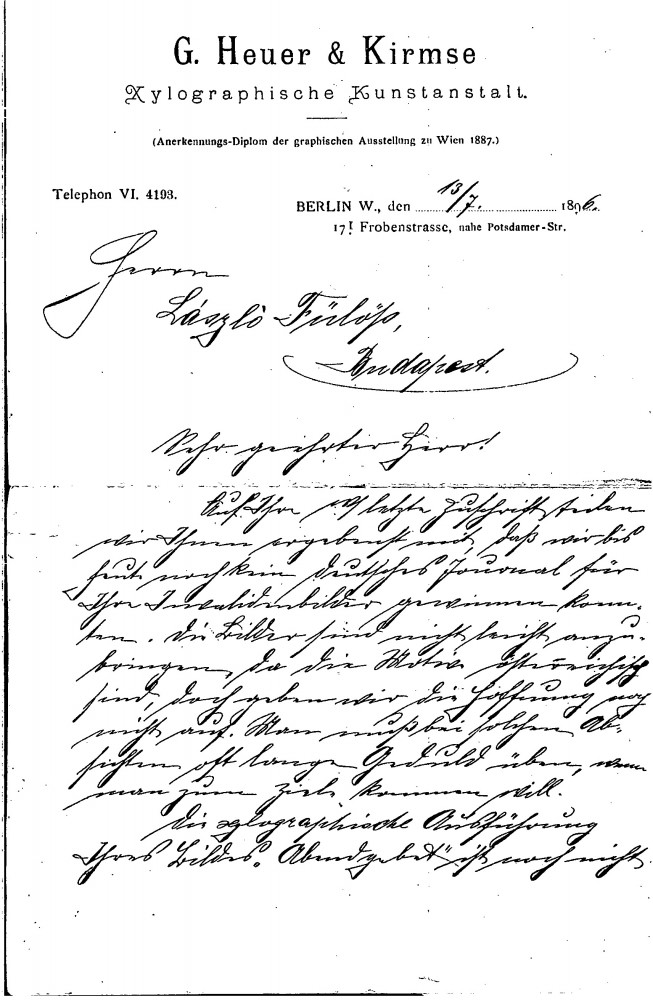 G. Heuer & Kirmse
Xylographische Kunstanstalt.
(Anerkennungs-Diplom der graphischen Ausstellung zu Wien 1887.)
Telephon VI. 4193.
BERLIN W., den 13/7. 1896.
17I Frobenstrasse, nahe Potsdamer-Str.
Herrn
László Fülöp,
Budapest.
Sehr geehrter Herr!
Auf Ihre letzte Zuschrift teilen
wir Ihnen ergebenst mit, daß wir bis
heute noch kein deutsches Journal für
Ihre Invalidenbilder gewinnen konn-
ten. Die Bilder sind nicht leicht anzu-
bringen, da die Motive österreichisch
sind, doch geben wir die Hoffnung noch
nicht auf. Man muß bei solchen Ab-
sichten oft lange Geduld üben, wenn
man zum Ziele kommen will.
Die xylographische Ausführung
Ihres Bildes „Abendgebet“ ist noch nicht